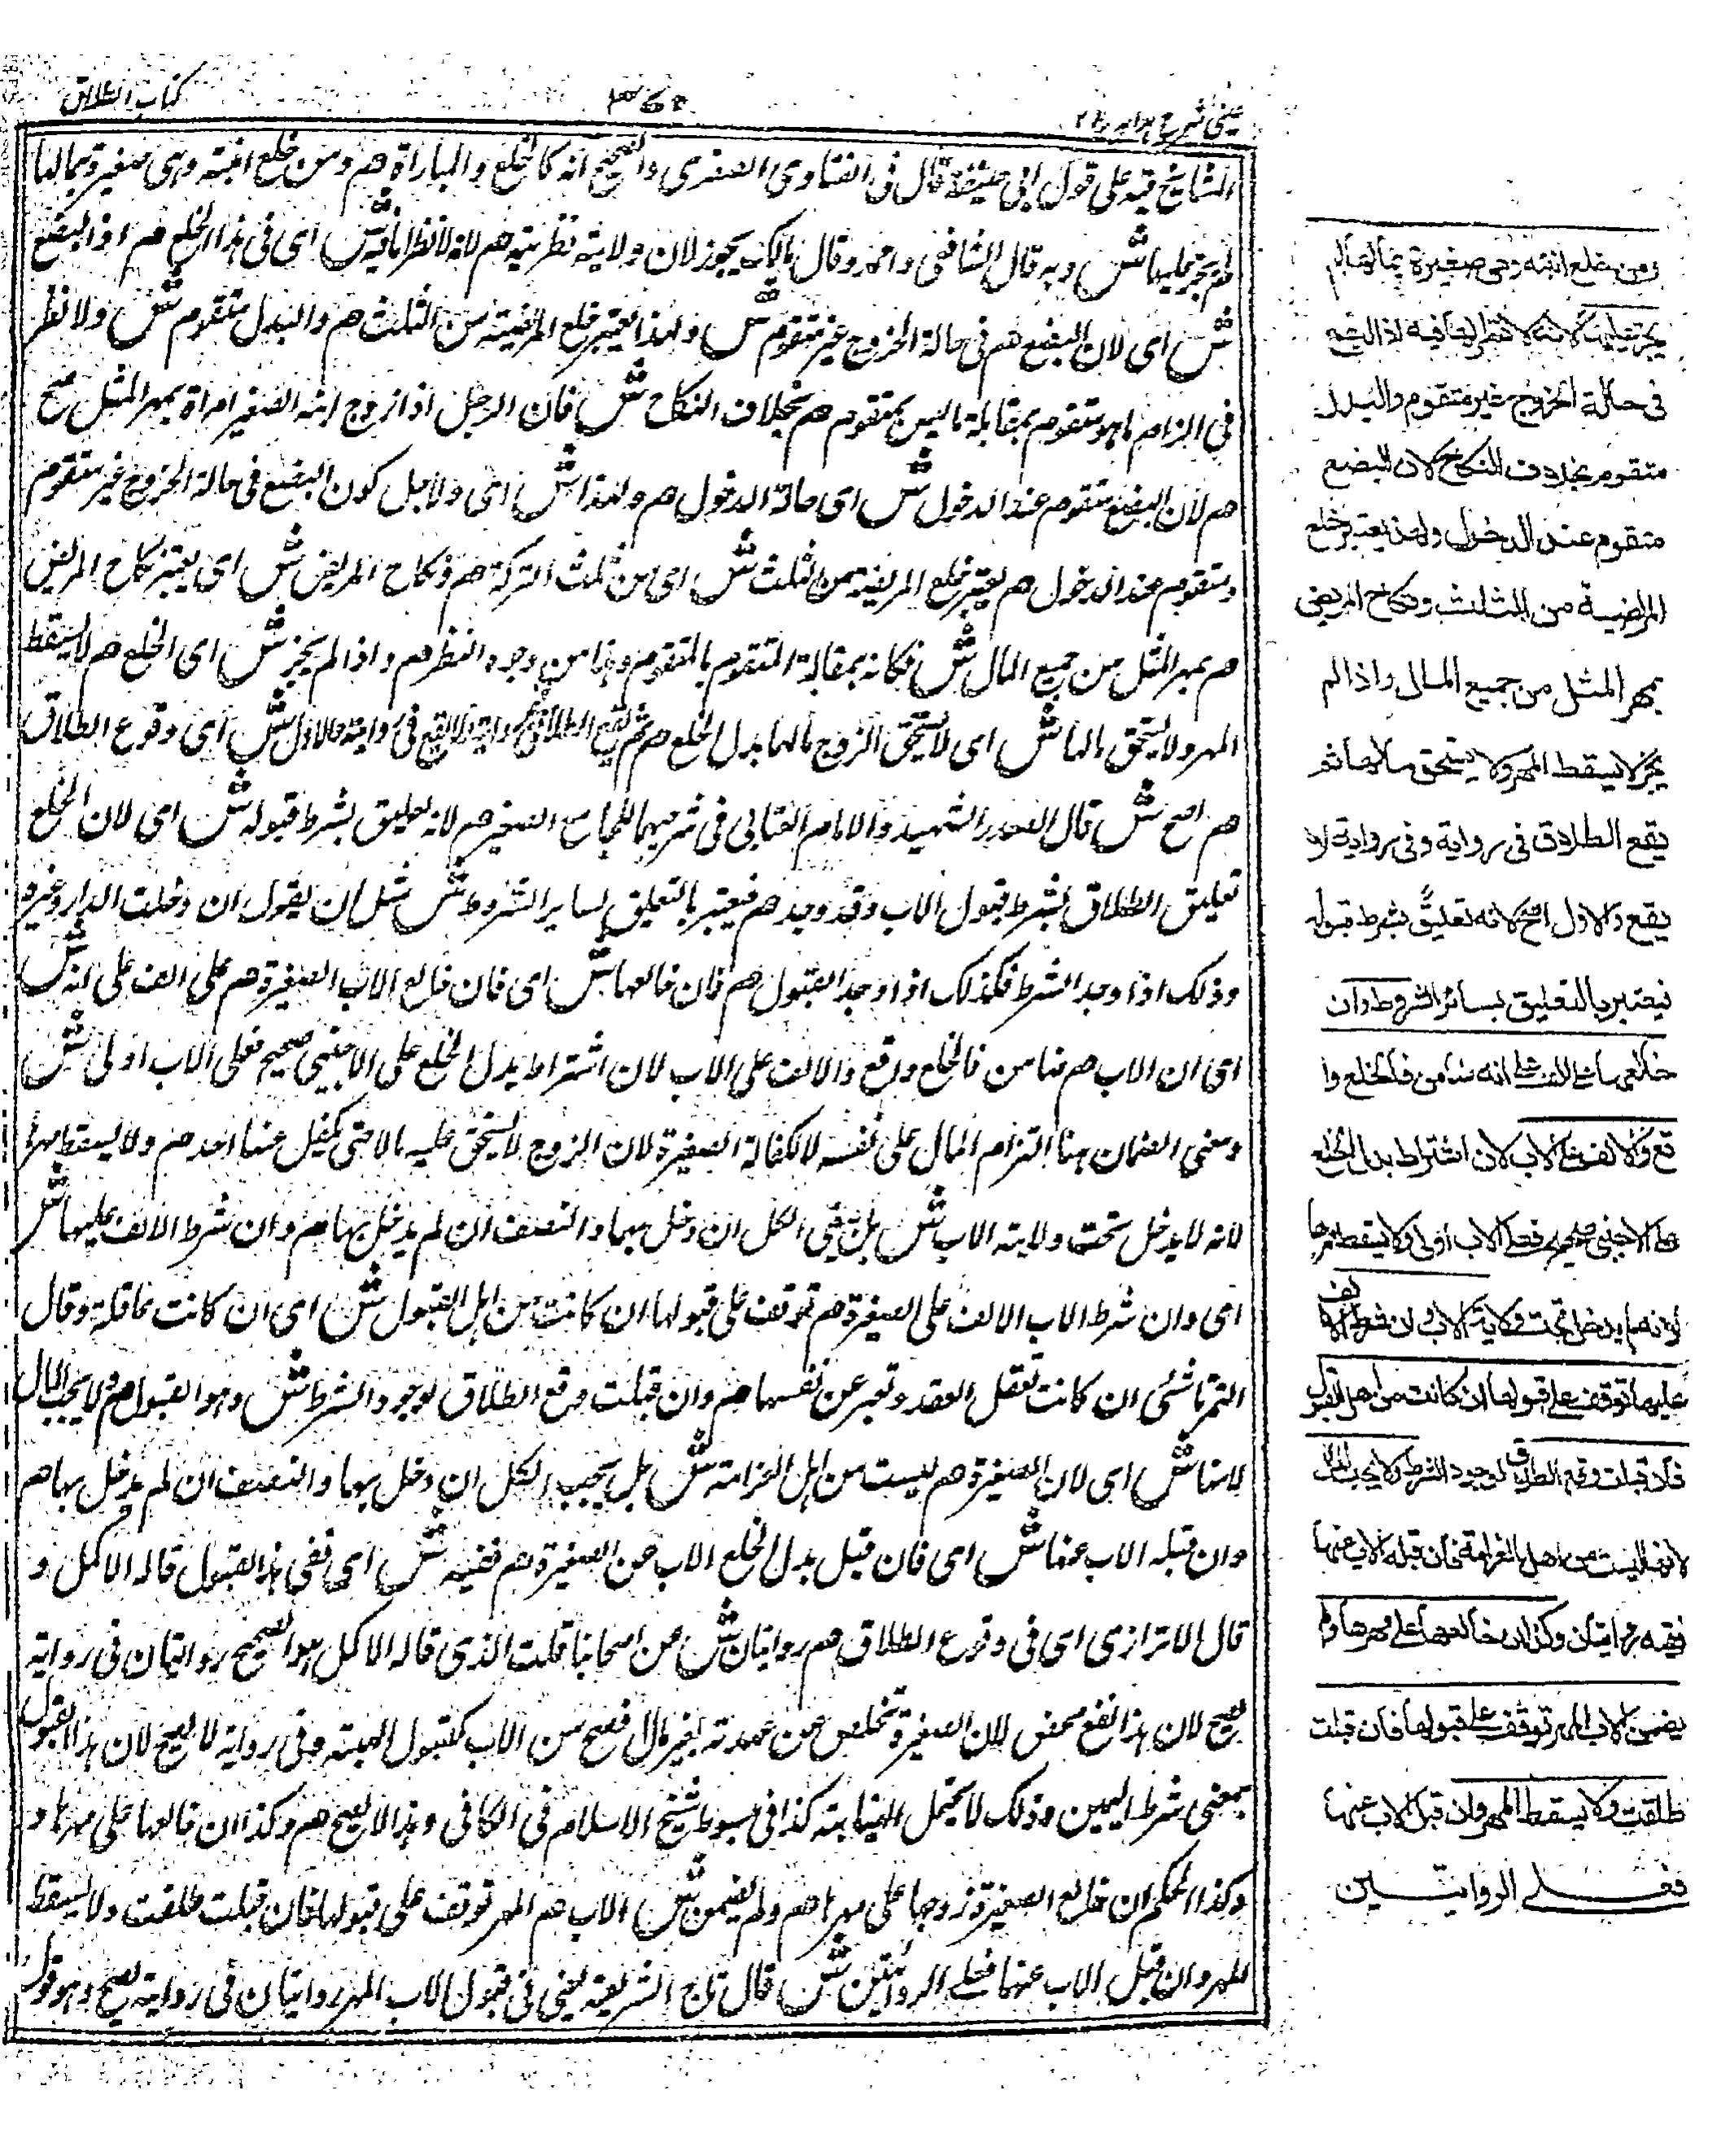 عيني شرح هداية ج ٢
كتاب الطلاق
المشايخ فيه على قول ابي حنيفة قال فى الفتاوى الصغرى والصحيح انه كالخلع والمباراة هم ومن خلع ابنته وهى صغيرة بمالها
لم يجز عليها ش وبه قال الشافعى واحمد وقال مالك يجوز لان ولايته نظرية هم لانه لا نظر لها فيه ش اى فى هذا الخلع هم اذ البضع
ش اى لان البضع هم فى حالة الخروج غير متقوم ش ولهذا يعتبر خلع المريضة من الثلث هم والبدل متقوم ش ولا نظر
فى الزام ما هو متقوم بمقابلة ما ليس بمتقوم هم بخلاف النكاح ش فان الرجل اذا زوج ابنه الصغير امراة بمهر المثل صح
هم لان البضع متقوم عند الدخول ش اى حالة الدخول هم ولهذا ش اى ولاجل كون البضع فى حالة الخروج غير متقوم
ومتقوم عند الدخول هم يعتبر خلع المريضة من الثلث ش اى من ثلث التركة هم ونكاح المريض ش اى يعتبر نكاح المريض
هم بمهر المثل من جميع المال ش فكانه بمقابلة المتقوم بالمتقوم وهذا من وجوه النظر هم واذا لم يجز ش اى الخلع هم لا يسقط
المهر ولا يستحق مالها ش اى لا يستحق الزوج مالها بدل الخلع هم ثم يقع الطلاق فى رواية ولا يقع فى رواية والاول ش اى وقوع الطلاق
هم اصح ش قال الصدر الشهيد والامام العتابى فى شرحيهما للجامع الصغير هم لانه تعليق بشرط قبوله ش اى لان الخلع
تعليق الطلاق بشرط قبول الاب وقد وجد هم فيعتبر بالتعليق بساير الشروط ش مثل ان يقول ان دخلت الدار وغيره
وذلك اذا وجد الشرط فكذلك اذا وجد القبول هم فان خالعها ش اى فان خالع الاب الصغيرة هم على الف على انه ش
اى ان الاب هم ضامن فالخلع واقع والالف على الاب لان اشتراط بدل الخلع على الاجنبى صحيح فعلى الاب اولى ش
ومعنى الضمان هنا التزام المال على نفسه لا لكفالة الصغيرة لان الزوج لا يستحق عليه مالا حتى يكفل عنها احد هم ولا يسقط مهرها
لانه لا يدخل تحت ولاية الاب ش بل بقى الكل ان دخل بها والنصف ان لم يدخل بها هم وان شرط الالف عليها ش
اى وان شرط الاب الالف على الصغيرة هم توقف على قبولها ان كانت من اهل القبول ش اى ان كانت عاقلة وقال
التمرتاشى ان كانت تعقل العقد وتعبر عن نفسها هم وان قبلت وقع الطلاق لوجود الشرط ش وهو القبول هم ولا يجب المال
لانها ش اى لان الصغيرة هم ليست من اهل الغرامة ش بل يجب الكل ان دخل بها والنصف ان لم يدخل بها هم
وان قبله الاب عنها ش اى فان قبل بدل الخلع الاب عن الصغيرة هم ففيه ش اى ففى هذا القبول قاله الاكمل و
قال الاترازى اى فى وقوع الطلاق هم روايتان ش عن اصحابنا قلت الذى قاله الاكمل هو الصحيح روايتان فى رواية
يصح لان هذا نفع محض لان الصغيرة تخلص عن عهدته بغير مال فصح من الاب كقبول الهبة وفى رواية لا يصح لان هذا القبول
بمعنى شرط اليمين وذلك لا يحتمل النيابة كذا فى مبسوط شيخ الاسلام فى الكافى وهذا الاصح هم وكذا ان خالعها على مهرها و
وكذا الحكم ان خالع الصغيرة زوجها على مهرها هم ولم يضمن ش الاب هم المهر توقف على قبولها فان قبلت طلقت ولا يسقط
المهر وان قبل الاب عنها فعلى الروايتين ش قال تاج الشريعة يعنى فى قبول الاب المهر روايتان فى رواية يصح وهو قول
ومن خلع ابنته وهى صغيرة بمالها لم
يجز عليها لانه لا نظر لها فيه اذ البضع
فى حالة الخروج غير متقوم والبدل
متقوم بخلاف النكاح لان البضع
متقوم عند الدخول ولهذا يعتبر خلع
المريضة من الثلث ونكاح المريض
بمهر المثل من جميع المال واذا لم
يجز لا يسقط المهر ولا يستحق مالها ثم
يقع الطلاق فى رواية وفى رواية لا
يقع والاول اصح لانه تعليق بشرط قبوله
فيعتبر بالتعليق بسائر الشروط وان
خالعها على الف على انه ضامن فالخلع وا
قع والالف على الاب لان اشتراط بدل الخلع
على الاجنبى صحيح فعلى الاب اولى ولا يسقط مهرها
لانه لم يدخل تحت ولاية الاب وان شرط الالف
عليها توقف على قبولها ان كانت من اهل القبول
فان قبلت وقع الطلاق لوجود الشرط ولا يجب المال
لانها ليست من اهل الغرامة فان قبله الاب عنها
ففيه روايتان وكذا ان خالعها على مهرها ولم
يضمن الاب المهر توقف على قبولها فان قبلت
طلقت ولا يسقط المهر وان قبل الاب عنها
فعلى الروايتين